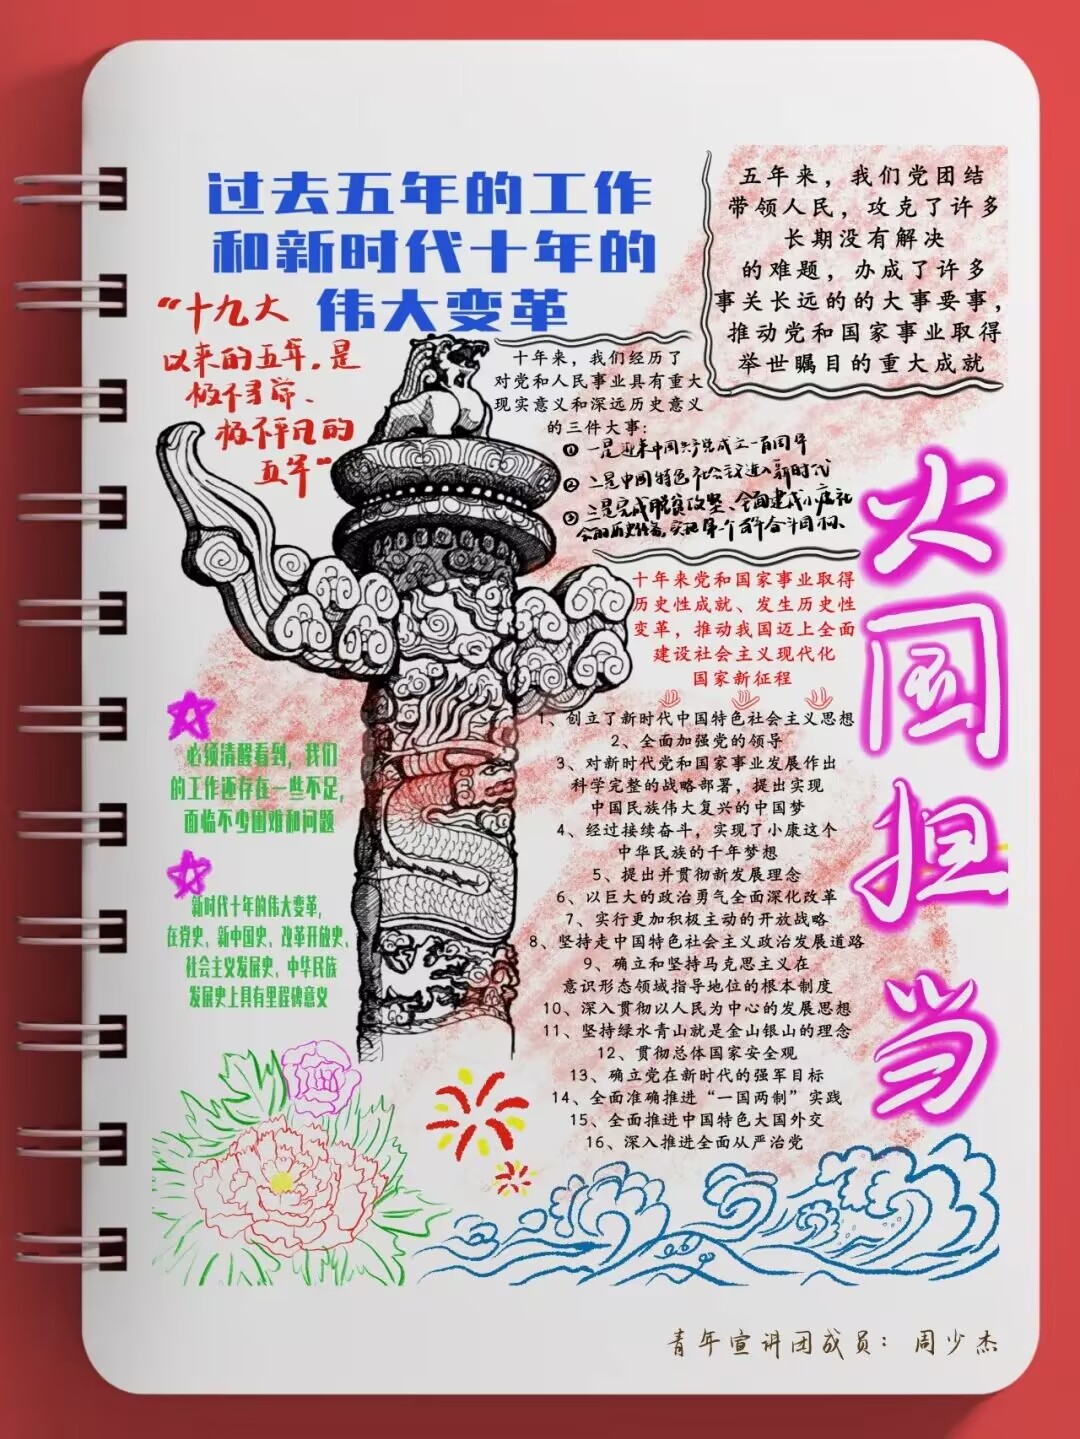 过去五年的工作
和新时代十年的
伟大变革
“十九大
以来的五年，是
极不寻常、
极不平凡的
五年”
五年来，我们党团结
带领人民，攻克了许多
长期没有解决
的难题，办成了许多
事关长远的的大事要事，
推动党和国家事业取得
举世瞩目的重大成就
十年来，我们经历了
对党和人民事业具有重大
现实意义和深远历史意义
的三件大事：
① 一是迎来中国共产党成立一百周年
② 二是中国特色社会主义进入新时代
③ 三是完成脱贫攻坚、全面建成小康社
会的历史任务，实现第一个百年奋斗目标、
十年来党和国家事业取得
历史性成就、发生历史性
变革，推动我国迈上全面
建设社会主义现代化
国家新征程
1、创立了新时代中国特色社会主义思想
2、全面加强党的领导
3、对新时代党和国家事业发展作出
科学完整的战略部署，提出实现
中国民族伟大复兴的中国梦
4、经过接续奋斗，实现了小康这个
中华民族的千年梦想
5、提出并贯彻新发展理念
6、以巨大的政治勇气全面深化改革
7、实行更加积极主动的开放战略
8、坚持走中国特色社会主义政治发展道路
9、确立和坚持马克思主义在
意识形态领域指导地位的根本制度
10、深入贯彻以人民为中心的发展思想
11、坚持绿水青山就是金山银山的理念
12、贯彻总体国家安全观
13、确立党在新时代的强军目标
14、全面准确推进“一国两制”实践
15、全面推进中国特色大国外交
16、深入推进全面从严治党
大国担当
必须清醒看到，我们
的工作还存在一些不足，
面临不少困难和问题
新时代十年的伟大变革，
在党史、新中国史、改革开放史、
社会主义发展史、中华民族
发展史上具有里程碑意义
青年宣讲团成员：周少杰